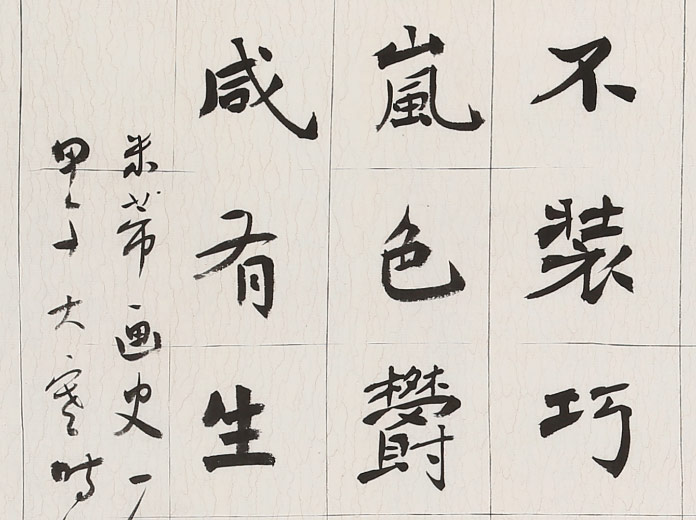 不装巧
嵐色鬱
咸有生
米芾画史一
甲午大寒时